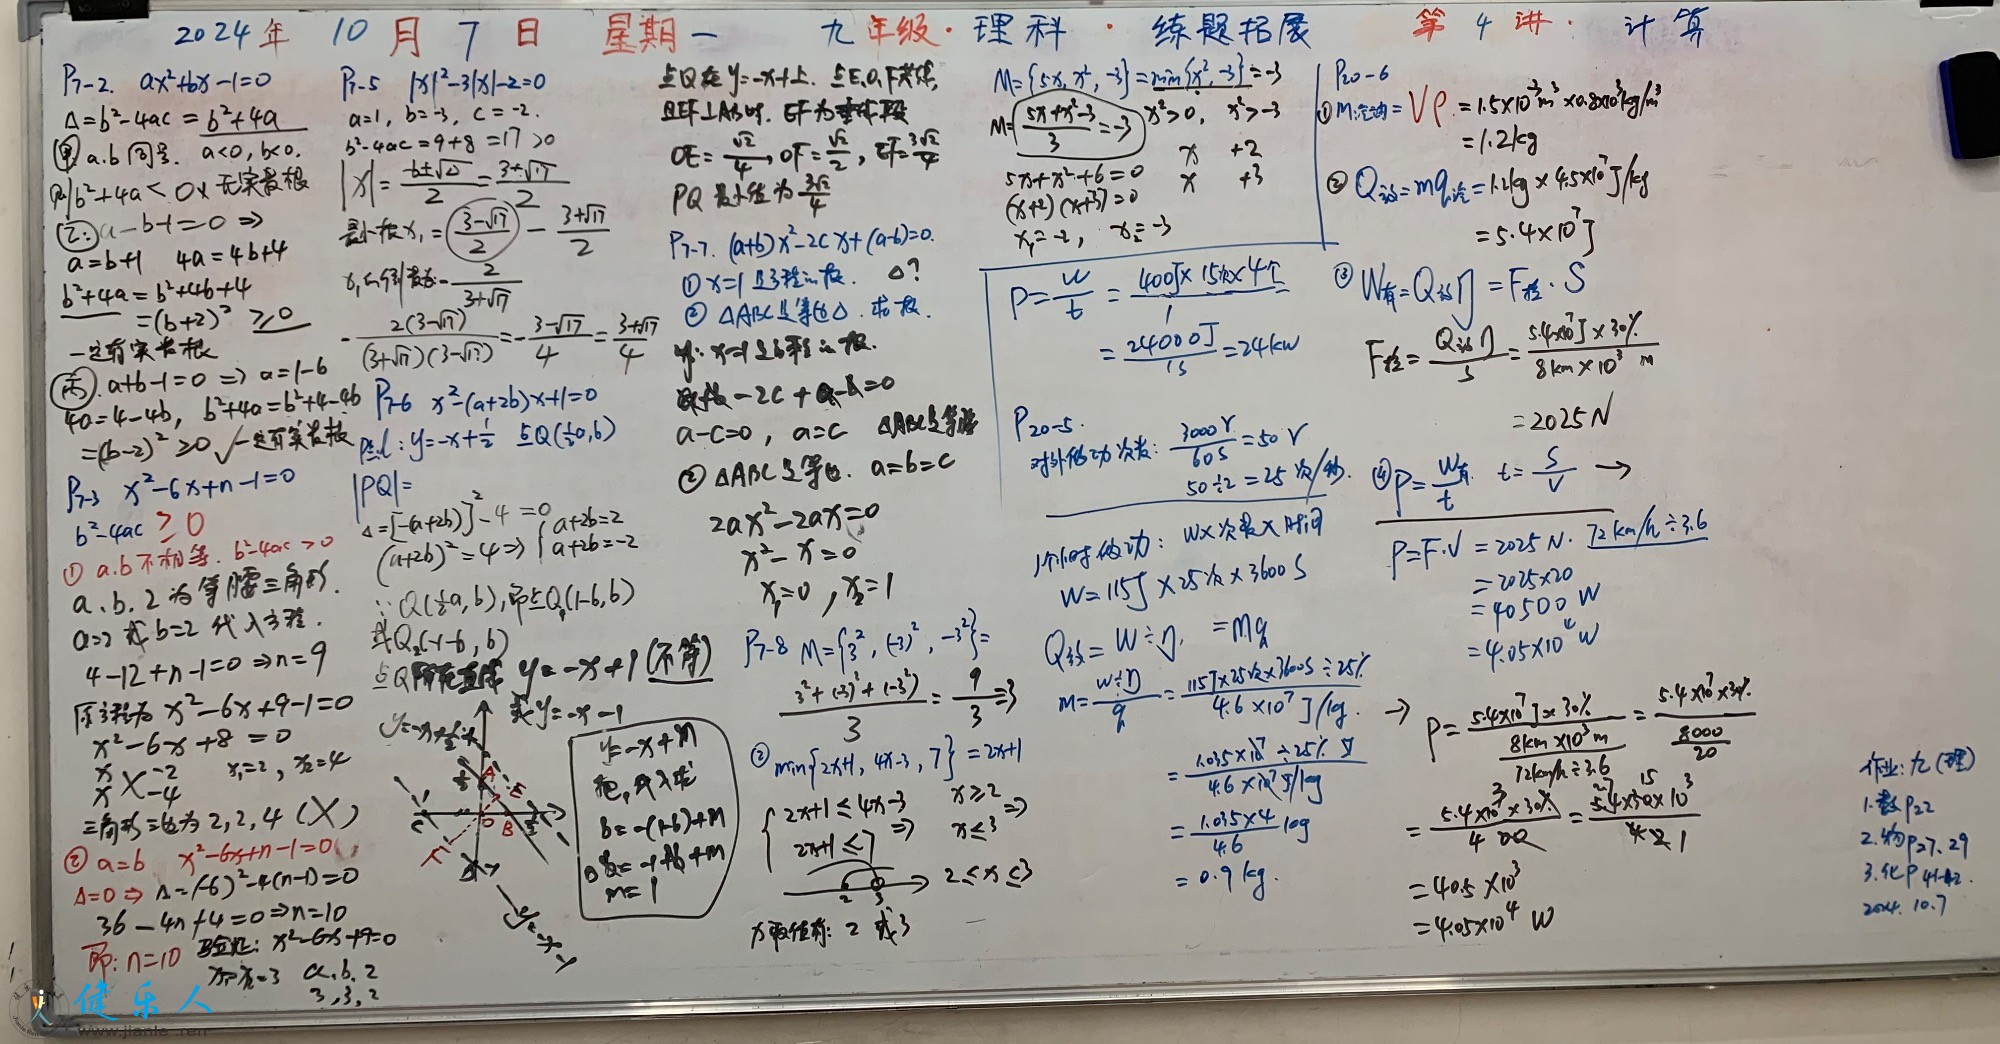 2024年 10月 7日 星期一 九年级·理科·练题拓展 第4讲·计算
P7-2. ax²+bx-1=0
Δ=b²-4ac=b²+4a
甲 a.b同号. a<0, b<0.
b²+4a<0× 无实数根
乙: a-b-1=0 ⇒
a=b+1 4a=4b+4
b²+4a=b²+4b+4
=(b+2)² ≥0
一定有实数根
丙. a+b-1=0 ⇒ a=1-b
4a=4-4b, b²+4a=b²+4-4b
=(b-2)² ≥0 √一定有实数根
P7-3 x²-6x+n-1=0
b²-4ac ≥0
① a.b不相等. b²-4ac>0
a、b、2为等腰三角形.
a=2或b=2代入方程.
4-12+n-1=0 ⇒n=9
原方程为 x²-6x+9-1=0
x²-6x+8=0
x -2
x -4
x₁=2, x₂=4
三角形三边为2,2,4 (X)
② a=b x²-6x+n-1=0
Δ=0 ⇒ Δ=(-6)²-4(n-1)=0
36-4n+4=0⇒n=10
即: n=10 验证: x²-6x+9=0
=3 a.b.2
3,3,2
P7-5 |x|²-3|x|-2=0
a=1, b=-3, c=-2.
b²-4ac=9+8=17>0
|x|=(-b±√Δ)/2=(3±√17)/2
最小根x₁=(3-√17)/2 -(3+√17)/2
x₁的倒数为-2/(3+√17)
-2(3-√17)/((3+√17)(3-√17))=-(3-√17)/4=(3+√17)/4
P7-6 x²-(a+2b)x+1=0
l: y=-x+1/2 点Q(½a,b)
|PQ|=
Δ=[-(a+2b)]²-4=0
(a+2b)²=4⇒{a+2b=2
a+2b=-2
∵Q(½a,b),即点Q₁(1-b,b)
或Q₂(-1-b,b)
点Q所在直线 y=-x+1(不等)
或y=-x-1
y=-x+½
A
E
C
O
B
F
D
y=-x+m
b=-(1-b)+m
b=-1+b+m
m=1
点Q在y=-x+1上. 点E.O.F共线,
且EF⊥AB时. EF为垂线段
OE=√2/4, OF=√2/2, EF=3√2/4
PQ最小值为3√2/4
P7-7. (a+b)x²-2cx+(a-b)=0.
① x=1是方程的根. Δ?
② △ABC是等边△. 求根.
x=1是方程的根.
-2c+a-b=0
a-c=0, a=c △ABC是等腰
② △ABC是等边. a=b=c
2ax²-2ax=0
x²-x=0
x₁=0, x₂=1
P7-8 M={3², (-3)², -3²}=
(3²+(-3)²+(-3²))/3=9/3=3
② min{2x+1, 4x-3, 7}=2x+1
{2x+1≤4x-3 x≥2
2x+1≤7 ⇒ x≤3 ⇒
2 3
2≤x≤3
2或3
M={5x, x², -3}=min{x², -3}=-3
M=(5x+x²-3)/3=-3 x²>0, x²>-3
5x+x²+6=0
x +2
x +3
(x+2)(x+3)=0
x₁=-2, x₂=-3
P=W/t=400J×15次×4个/1
=24000J/1s=24kw
P20-5.
对外做功次数: 3000r/60s=50r
50÷2=25次/秒.
1个小时做功: W×次数×时间
W=115J×25次×3600s
Q放=W÷η. =mq
m=W÷η/q=115J×25次×3600s÷25%/4.6×10⁷J/kg.
=1.035×10⁷÷25% J/4.6×10⁷J/kg
=1.035×4/4.6 kg
=0.9kg.
P20-6
① m汽油=Vρ=1.5×10⁻³m³×0.8×10³kg/m³
=1.2kg
② Q放=mq汽=1.2kg×4.5×10⁷J/kg
=5.4×10⁷J
③ W有=Q放η=F牵·S
F牵=Q放η/s=5.4×10⁷J×30%/8km×10³ m
=2025N
④ P=W有/t t=S/V →
P=F·V=2025N·72km/h÷3.6
=2025×20
=40500W
=4.05×10⁴W
→ P=5.4×10⁷J×30%/(8km×10³m/72km/h÷3.6)=5.4×10⁷×30%/(8000/20)
=5.4×10⁷×30%/400=5.4×30×10³/4
=40.5×10³
=4.05×10⁴ W
作业:九(理)
1.数P22
2.物P27、29
3.化P41-42.
2024.10.7
健乐人
www.jianle.ren